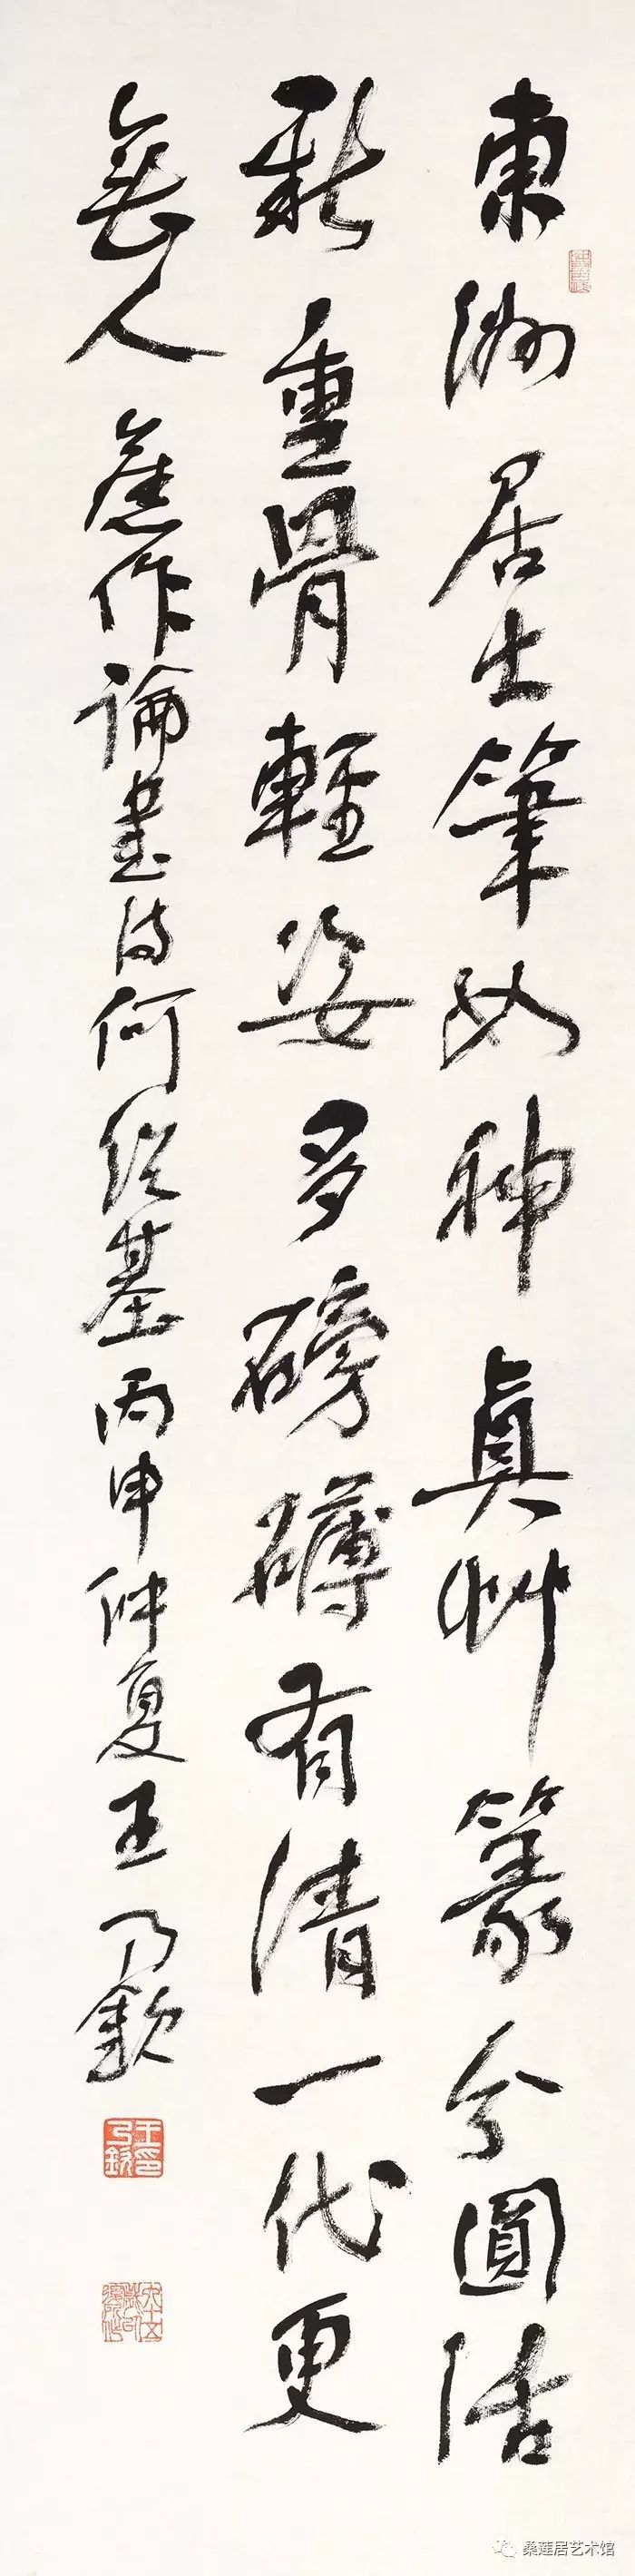 東洲居士筆如神真艸篆分圓活
新重骨輕姿多磅礴有清一代更
無人 舊作論書詩何紹基丙申仲夏王乃欽
王乃欽印
桑蓮居艺术馆